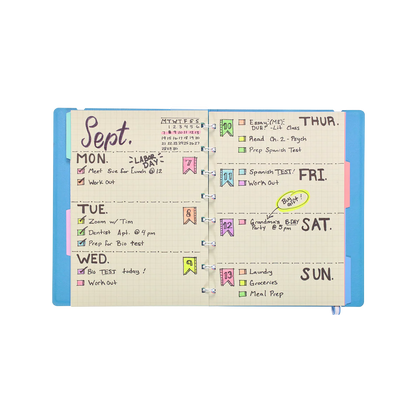 Sept.
M T W T F S S
1 2 3 4 5 6
MON.
LABOR
DAY
7
Meet Sue for Lunch @ 12
Work Out
TUE.
8
Zoom w/ Tim
Dentist Apt. @ 4 pm
Prep for Bio test
WED.
9
Bio TEST today!
Work Out
THUR.
10
Essay (ME)
DUE! - Lit Class
Read Ch. 2 - Psych
Prep Spanish Test
FRI.
11
Spanish TEST!
Work Out
SAT.
12
Grandma's B-DAY
Party @ 5 pm
SUN.
13
Laundry
Groceries
Meal Prep